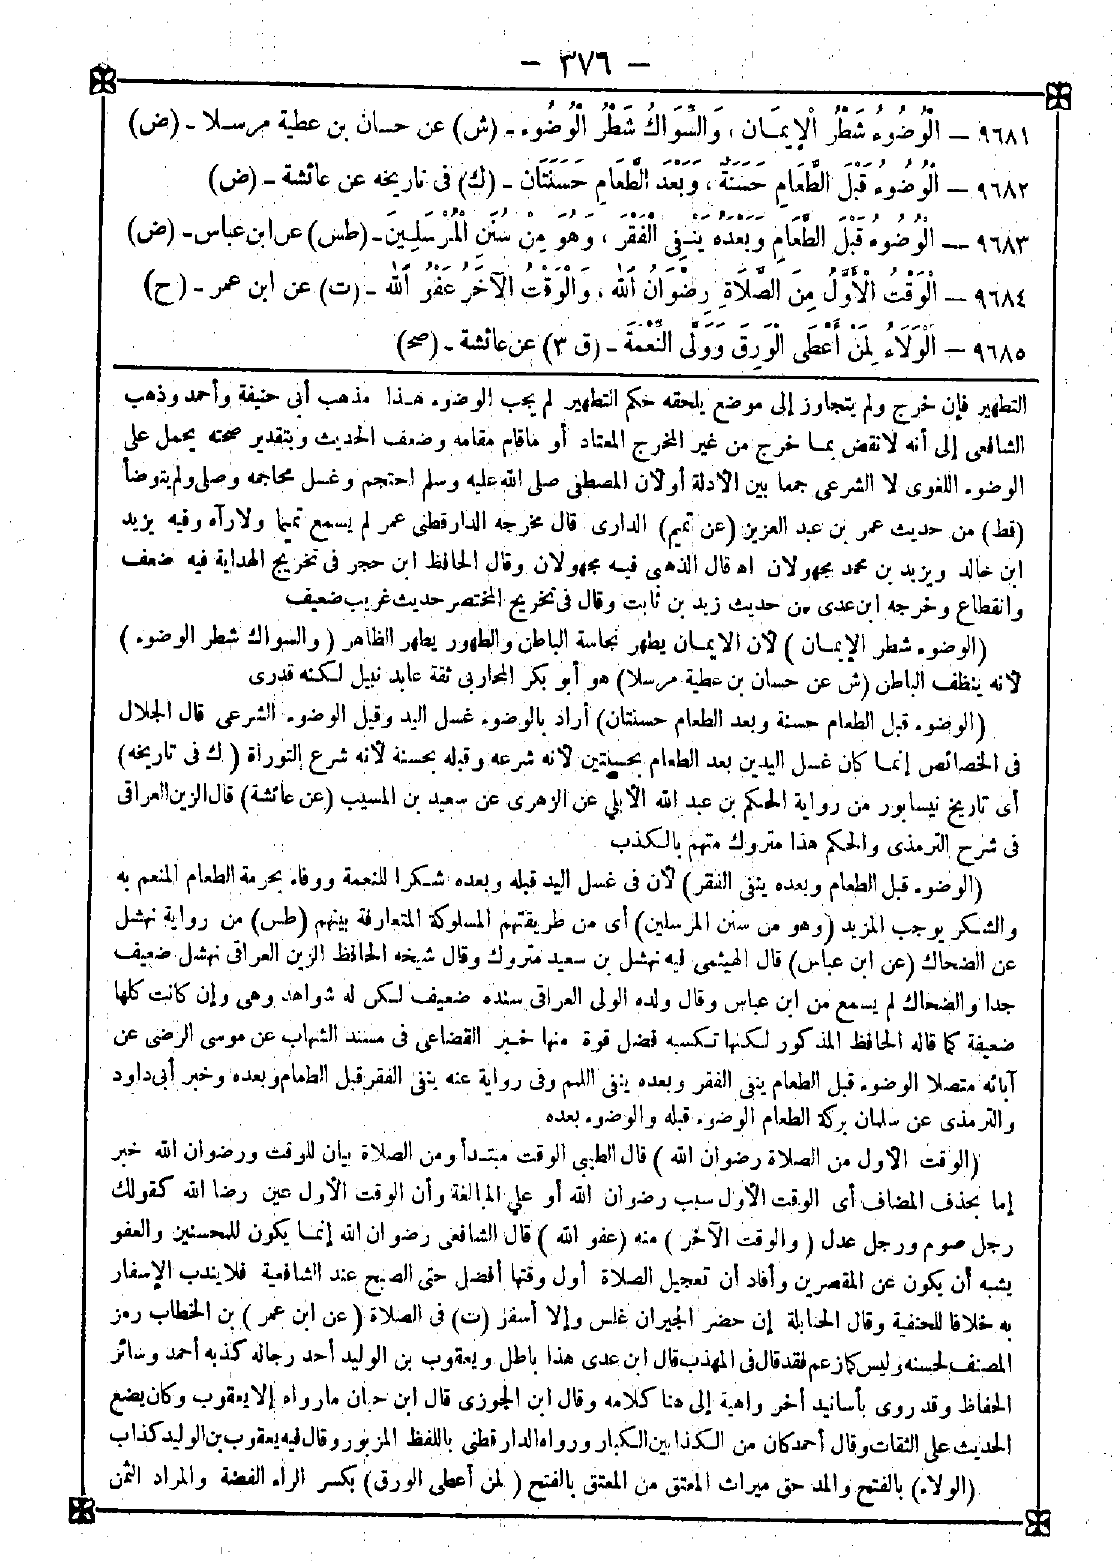 - ٣٧٦ -
٩٦٨١ - الْوُضُوءُ شَطْرُ الْإِيمَانِ ، وَالسِّوَاكُ شَطْرُ الْوُضُوءِ - (ش) عن حسان بن عطية مرسلا - (ض)
٩٦٨٢ - الْوُضُوءُ قَبْلَ الطَّعَامِ حَسَنَةٌ ، وَبَعْدَ الطَّعَامِ حَسَنَتَانِ - (ك) فى تاريخه عن عائشة - (ض)
٩٦٨٣ - الْوُضُوءُ قَبْلَ الطَّعَامِ وَبَعْدَهُ يَنْفِى الْفَقْرَ ، وَهُوَ مِنْ سُنَنِ الْمُرْسَلِينَ - (طس) عن ابن عباس - (ض)
٩٦٨٤ - الْوَقْتُ الْأَوَّلُ مِنَ الصَّلَاةِ رِضْوَانُ اللهِ ، وَالْوَقْتُ الْآخَرُ عَفْوُ اللهِ - (ت) عن ابن عمر - (ح)
٩٦٨٥ - الْوَلَاءُ لِمَنْ أَعْطَى الْوَرِقَ وَوَلِىَ النِّعْمَةَ - (ق ٣) عن عائشة - (صح)
التطهير فإن خرج ولم يتجاوز إلى موضع يلحقه حكم التطهير لم يجب الوضوء هذا مذهب أبى حنيفة وأحمد وذهب
الشافعى إلى أنه لانقض بما خرج من غير المخرج المعتاد أو ماقام مقامه وضعف الحديث وبتقدير صحته يحمل على
الوضوء اللغوى لا الشرعى جمعا بين الأدلة أولأن المصطفى صلى الله عليه وسلم احتجم وغسل محاجمه وصلى ولم يتوضأ
(قط) من حديث عمر بن عبد العزيز (عن تميم) الدارى قال مخرجه الدارقطنى عمر لم يسمع تميما ولارآه وفيه يزيد
ابن خالد ويزيد بن محمد مجهولان اه قال الذهبى فيه مجهولان وقال الحافظ ابن حجر فى تخريج الهداية فيه ضعف
وانقطاع وخرجه ابن عدى من حديث زيد بن ثابت وقال فى تخريج المختصر حديث غريب ضعيف
(الوضوء شطر الإيمان) لأن الايمان يطهر نجاسة الباطن والطهور يطهر الظاهر (والسواك شطر الوضوء)
لأنه ينظف الباطن (ش عن حسان بن عطية مرسلا) هو أبو بكر المحاربى ثقة عابد نبيل لكنه قدرى
(الوضوء قبل الطعام حسنة وبعد الطعام حسنتان) أراد بالوضوء غسل اليد وقيل الوضوء الشرعى قال الجلال
فى الخصائص إنما كان غسل اليدين بعد الطعام بحسنتين لأنه شرعه وقبله بحسنة لأنه شرع التوراة (ك فى تاريخه)
أى تاريخ نيسابور من رواية الحكم بن عبد الله الأيلى عن الزهرى عن سعيد بن المسيب (عن عائشة) قال الزين العراقى
فى شرح الترمذى والحكم هذا متروك متهم بالكذب
(الوضوء قبل الطعام وبعده ينفى الفقر) لأن فى غسل اليد قبله وبعده شكرا للنعمة ووفاء بحرمة الطعام المنعم به
والشكر يوجب المزيد (وهو من سنن المرسلين) أى من طريقتهم المسلوكة المتعارفة بينهم (طس) من رواية نهشل
عن الضحاك (عن ابن عباس) قال الهيثمى فيه نهشل بن سعيد متروك وقال شيخه الحافظ الزين العراقى نهشل ضعيف
جدا والضحاك لم يسمع من ابن عباس وقال ولده الولى العراقى سنده ضعيف لكن له شواهد وهى وإن كانت كلها
ضعيفة كما قاله الحافظ المذكور لكنها تكسبه فضل قوة منها خبر القضاعى فى مسند الشهاب عن موسى الرضى عن
آبائه متصلا الوضوء قبل الطعام ينفى الفقر وبعده ينفى اللمم وفى رواية عنه ينفى الفقر قبل الطعام وبعده وخبر أبى داود
والترمذى عن سلمان بركة الطعام الوضوء قبله والوضوء بعده
(الوقت الأول من الصلاة رضوان الله) قال الطيبى الوقت مبتدأ ومن الصلاة بيان للوقت ورضوان الله خبر
إما بحذف المضاف أى الوقت الأول سبب رضوان الله أو على المبالغة وأن الوقت الأول عين رضا الله كقولك
رجل صوم ورجل عدل (والوقت الآخر) منه (عفو الله) قال الشافعى رضوان الله إنما يكون للمحسنين والعفو
يشبه أن يكون عن المقصرين وأفاد أن تعجيل الصلاة أول وقتها أفضل حتى الصبح عند الشافعية فلايندب الإسفار
به خلافا للحنفية وقال الحنابلة إن حضر الجيران غلس وإلا أسفر (ت) فى الصلاة (عن ابن عمر) بن الخطاب رمز
المصنف لحسنه وليس كما زعم فقد قال فى المهذب قال ابن عدى هذا باطل ويعقوب بن الوليد أحد رجاله كذبه أحمد وسائر
الحفاظ وقد روى بأسانيد أخر واهية إلى هنا كلامه وقال ابن الجوزى قال ابن حبان مارواه إلا يعقوب وكان يضع
الحديث على الثقات وقال أحمد كان من الكذابين الكبار ورواه الدارقطنى باللفظ المزبور وقال فيه يعقوب بن الوليد كذاب
(الولاء) بالفتح والمد حق ميراث المعتق من المعتق بالفتح (لمن أعطى الورق) بكسر الراء الفضة والمراد الثمن